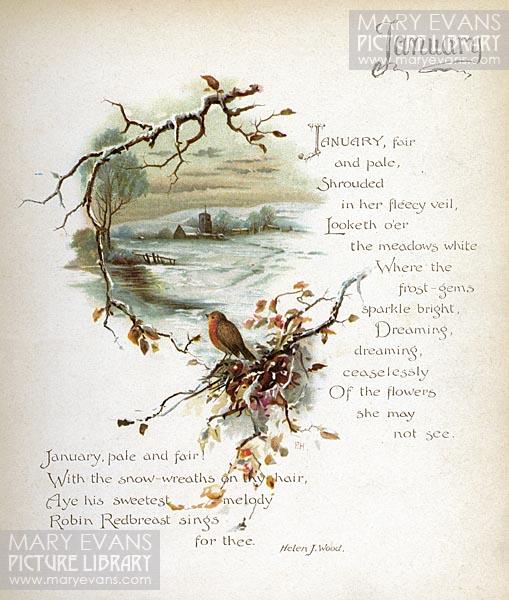 MARY EVANS
PICTURE LIBRARY
www.maryevans.com
January
JANUARY, fair
and pale,
Shrouded
in her fleecy veil,
Looketh o'er
the meadows white
Where the
frost-gems
sparkle bright,
Dreaming,
dreaming,
ceaselessly
Of the flowers
she may
not see.
F.H.
January, pale and fair!
With the snow-wreaths on thy hair,
Aye his sweetest melody
Robin Redbreast sings
for thee.
Helen J. Wood.
MARY EVANS
PICTURE LIBRARY
www.maryevans.com
MARY EVANS
PICTURE LIBRARY
www.maryevans.com